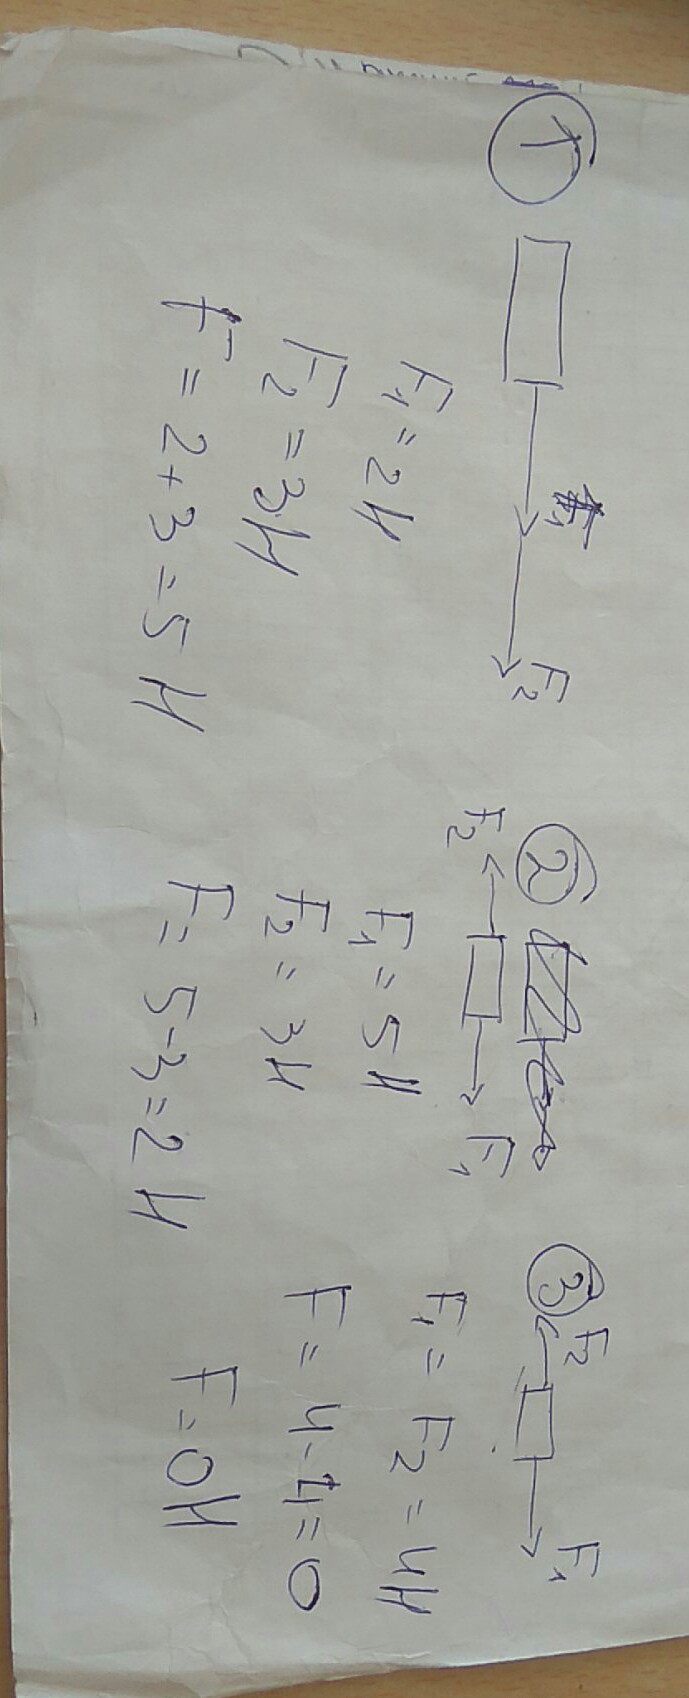 1
F₁
F₂
F₁ = 2Н
F₂ = 3Н
F = 2+3 = 5 Н
2
F₂
F₁
F₁ = 5 Н
F₂ = 3Н
F = 5-3 = 2 Н
3
F₂
F₁
F₁ = F₂ = 4Н
F = 4-4 = 0
F = 0Н